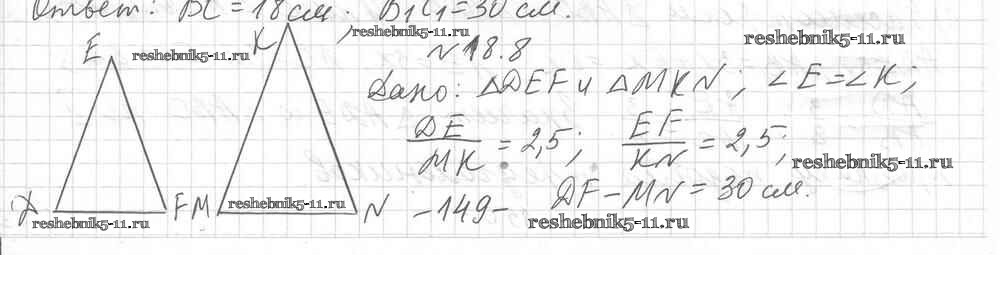 Ответ: BC = 18 см. B₁C₁ = 30 см.
reshebnik5-11.ru
№ 18.8
reshebnik5-11.ru
E
reshebnik5-11.ru
K
Дано: △DEF и △MKN; ∠E = ∠K;
DE/MK = 2,5; EF/KN = 2,5;
reshebnik5-11.ru
DF – MN = 30 см.
D
F M
reshebnik5-11.ru
N
–149–
reshebnik5-11.ru
reshebnik5-11.ru